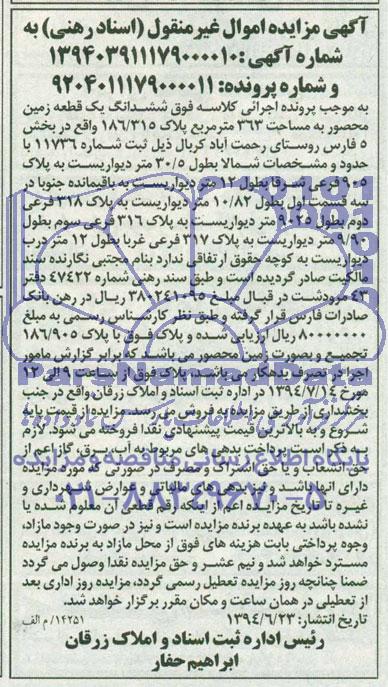 آگهی مزایده اموال غیرمنقول (اسناد رهنی) به
شماره آگهی :۱۳۹۴۰۳۹۱۱۱۷۹۰۰۰۰۱۰
و شماره پرونده: ۹۲۰۴۰۱۱۱۷۹۰۰۰۰۱۱
به موجب پرونده اجرائی کلاسه فوق ششدانگ یک قطعه زمین
محصور به مساحت ۳۶۳ مترمربع پلاک ۱۸۶/۳۱۵ واقع در بخش
۵ فارس روستای رحمت آباد کربال ذیل ثبت شماره ۱۱۷۳۶ با
حدود و مشخصات شمالا بطول ۳۰/۵ متر دیواریست به پلاک
۹۰۵ فرعی شرقا بطول ۱۲ متر دیواریست به باقیمانده جنوبا در
سه قسمت اول بطول ۱۰/۸۲ متر دیواریست به پلاک ۳۱۸ فرعی
دوم بطول ۹۰۲۵ متر دیواریست به پلاک ۳۱۶ فرعی سوم بطول
۹/۹۰ متر دیواریست به پلاک ۳۱۷ فرعی غربا بطول ۱۲ متر درب
دیواریست به کوچه حقوق ارتفاقی ندارد بنام مجتبی نگارنده سند
مالکیت صادر گردیده است و طبق سند رهنی شماره ۴۷۴۲۲ دفتر
۴۳ مرودشت در قبال مبلغ ۳۸۰۲۴۱۰۹۵ ریال در رهن بانک
صادرات فارس قرار گرفته و طبق نظر کارشناس رسمی به مبلغ
ریال ارزیابی شده و پلاک فوق با پلاک ۱۸۶/۹۰۵
تجمیع و بصورت زمین محصور می باشد که برابر گزارش مامور
اجرا در تصرف بدهکار می باشد، پلاک فوق از ساعت ۹ الی ۱۲
مورخ ۱۳۹۴/۷/۱۴ در اداره ثبت اسناد و املاک زرقان واقع در جنب
بخشداری از طریق مزایده به فروش می رسد مزایده از قیمت پایه
شروع و به بالاترین قیمت پیشنهادی نقدا فروخته می شود، لازم
به ذکر است پرداخت بدهی های مربوط به آب، برق، گاز اعم از
حق انشعاب و یا حق اشتراک و مصرف در صورتی که مورد مزایده
دارای آنها باشد و نیز بدهی های مالیاتی و عوارض شهرداری و
غیره تا تاریخ مزایده اعم از اینکه رقم قطعی آن معلوم شده یا
نشده باشد به عهده برنده مزایده است و نیز در صورت وجود مازاد،
وجوه پرداختی بابت هزینه های فوق از محل مازاد به برنده مزایده
مسترد خواهد شد و نیم عشر و حق مزایده نقدا وصول می گردد
ضمنا چنانچه روز مزایده تعطیل رسمی گردد، مزایده روز اداری بعد
از تعطیلی در همان ساعت و مکان مقرر برگزار خواهد شد.
تاریخ انتشار: ۱۳۹۴/۶/۲۳ ۱۴۲۵۱/ م الف
رئیس اداره ثبت اسناد و املاک زرقان
ابراهیم حفار
پایگاه اطلاع رسانی مناقصه و مزایده
۰۲۱-۸۸۳۴۹۶۷۰-۵